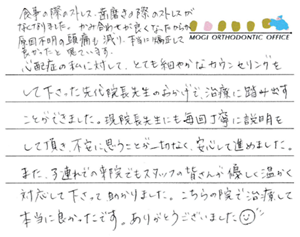 食事の際のストレス、歯磨きの際のストレスが
なくなりました。かみ合わせが良くなったからか
原因不明の頭痛も減り、本当に矯正して
良かったと思っています。
MOGI ORTHODONTIC OFFICE
心配症の私に対して、とても細やかなカウンセリングを
して下さった先代院長先生のおかげで、治療に踏み出す
ことができました。現院長先生にも毎回丁寧に説明を
して頂き、不安に思うことが一切なく、安心して進めました。
また、子連れでの来院でもスタッフの皆さんが優しく温かく
対応して下さって助かりました。こちらの院で治療して
本当に良かったです。ありがとうございました